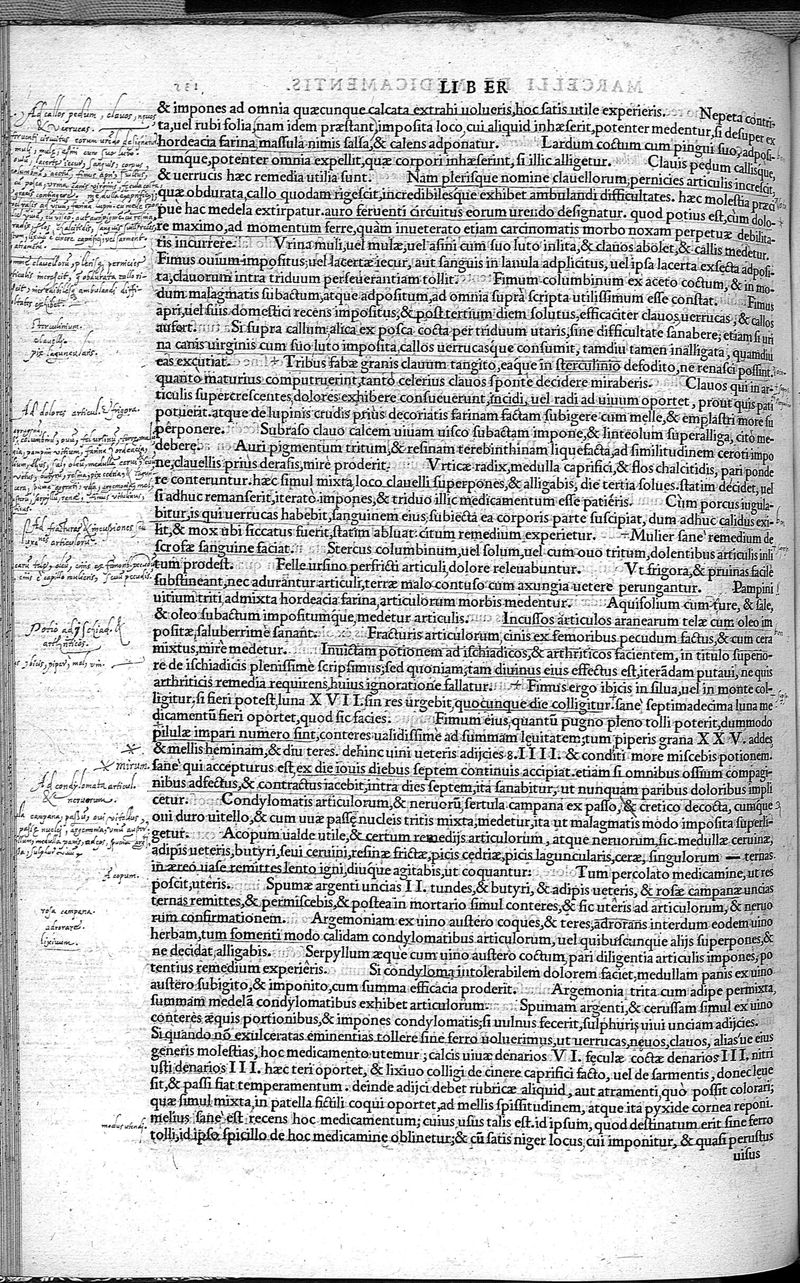 LIBER
& impones ad omnia quæcunque calcata extrahi uolueris, hoc satis utile experieris. Nepeta contri-
ta, uel rubi folia, (nam idem præstant) imposita loco, cui aliquid inhæserit, potenter medentur, si desuper ex
hordeacia farina massula nimis salsa, & calens adponatur. Lardum coctum cum pingui suo, adposi-
tumque, potenter omnia expellit, quæ corpori inhæserint, si illic alligetur. Clauis pedum callisque,
& uerrucis hæc remedia utilia sunt. Nam plerisque nomine clauellorum, pernicies articulis increscit,
quæ obdurata, callo quodam rigescit, incredibilesque exhibet ambulandi difficultates. hæc molestia præci
puè hac medela extirpatur. auro feruenti circuitus eorum urendo designatur. quod potius est, cùm dolo-
re maximo, ad momentum ferre, quàm inueterato etiam carcinomatis morbo noxam perpetuæ debilita-
tis incurrere. Vrina muli, uel mulæ, uel asini cum suo luto inlita, & clauos abolet, & callis medetur.
Fimus ouium impositus, uel lacertæ iecur, aut sanguis in lanula adplicitus, uel ipsa lacerta exsecta adposi-
ta, clauorum intra triduum perseuerantiam tollit. Fimum columbinum ex aceto coctum, & in mo-
dum malagmatis subactum, atque adpositum, ad omnia suprà scripta utilissimum esse constat. Fimus
apri, uel suis domestici recens impositus, & post tertium diem solutus, efficaciter clauos, uerrucas, & callos
aufort. Si supra callum, alica ex posca cocta per triduum utaris, sine difficultate sanabere, etiam si uri
na canis uirginis cum suo luto imposita, callos uerrucasque consumit, tamdiu tamen inalligata, quamdiu
eas excutiat. Tribus fabæ granis clauum tangito, eaque in sterculinio defodito, ne renasci possint.
quantò maturius computruerint, tantò celerius clauos sponte decidere miraberis. Clauos qui in ar-
ticulis supercrescentes, dolores exhibere consueuerunt, incidi, uel radi ad uiuum oportet, prout quis pati
potuerit. atque de lupinis crudis prius decoriatis farinam factam subigere cum melle, & emplastri more su
perponere. Subraso clauo calcem uiuam uisco subactam impone, & linteolum superalliga, citò me-
debere. Auri pigmentum tritum, & resinam terebinthinam liquefacta, ad similitudinem ceroti impo
ne, clauellis prius derasis, mirè proderit. Vrticæ radix, medulla caprifici, & flos chalcitidis, pari ponde
re conteruntur. hæc simul mixta, loco clauelli superpones, & alligabis, die tertia solues. statim decidet, uel
si adhuc remanserit, iteratò impones, & triduo illic medicamentum esse patiêris. Cùm porcus iugula-
bitur, is qui uerrucas habebit, sanguinem eius subiecta ea corporis parte suscipiat, dum adhuc calidus exi-
lit, & mox ubi siccatus fuerit, statim abluat. citum remedium experietur. Mulier sanè remedium de
scrofæ sanguine faciat. Stercus columbinum, uel solum, uel cum ouo tritum, dolentibus articulis inli
tum prodest. Felle ursino perfricti articuli, dolore releuabuntur. Vt frigora, & pruinas facilè
substineant, nec adurantur articuli, terræ malo contuso cum axungia uetere perungantur. Pampini
uitium triti, admixta hordeacia farina, articulorum morbis medentur. Aquifolium cum ture, & sale,
& oleo subactum impositumque, medetur articulis. Incussos articulos aranearum telæ cum oleo im
positæ, saluberrimè sanant. Fracturis articulorum, cinis ex femoribus pecudum factus, & cum cera
mixtus, mirè medetur. Inuictam potionem ad ischiadicos, & arthriticos facientem, in titulo superio-
re de ischiadicis plenissimè scripsimus; sed quoniam, tam diuinus eius effectus est, iterãdam putaui, ne quis
arthriticis remedia requirens, huius ignoratione fallatur. Fimus ergo ibicis in silua, uel in monte col-
ligitur, si fieri potest, luna XVII. sin res urgebit, quocunque die colligitur. sanè septimadecima luna me
dicamentũ fieri oportet, quod sic facies. Fimum eius, quantũ pugno pleno tolli poterit, dummodo
pilulæ impari numero sint, conteres ualidissimè ad summam leuitatem; tum piperis grana XXV. addes
& mellis heminam, & diu teres. dehinc uini ueteris adijcies 8. IIII. & conditi more miscebis potionem.
sanè qui accepturus est, ex die iouis diebus septem continuis accipiat. etiam si omnibus ossium compagi-
nibus adfectus, & contractus iacebit, intra dies septem, ita sanabitur, ut nunquam paribus doloribus impli
cetur. Condylomatis articulorum, & neruorũ, sertula campana ex passo, & cretico decocta, cumque
oui duro uitello, & cum uuæ passę nucleis tritis mixta, medetur, ita ut malagmatis modo imposita superli-
getur. Acopum ualde utile, & certum remedijs articulorum, atque neruorum, sic. medullæ ceruinæ,
adipis ueteris, butyri, seui ceruini, resinæ frictæ, picis cędriæ, picis laguncularis, ceræ, singulorum — ternas
in æreo uase remittes lento igni, diuque agitabis, ut coquantur: Tum percolato medicamine, ut res
poscit, utêris. Spumæ argenti uncias II. tundes, & butyri, & adipis ueteris, & rosæ campanæ uncias
ternas remittes, & permiscebis, & postea in mortario simul conteres, & sic utêris ad articulorum, & neruo
rum confirmationem. Argemoniam ex uino austero coques, & teres, adrorans interdum eodem uino
herbam, tum somenti modo calidam condylomatibus articulorum, uel quibuscunque alijs superpones, &
ne decidat, alligabis. Serpyllum æque cum uino austero coctum, pari diligentia articulis impones, po
tentius remedium experiêris. Si condyloma intolerabilem dolorem faciet, medullam panis ex uino
austero subigito, & imponito, cum summa efficacia proderit. Argemonia trita cum adipe permixta,
summam medelã condylomatibus exhibet articulorum. Spumam argenti, & cerussam simul ex uino
conteres æquis portionibus, & impones condylomatis; si uulnus fecerit, sulphuris uiui unciam adijcies.
Si quando nõ exulceratas eminentias tollere sine ferro uoluerimus, ut uerrucas, nęuos, clauos, aliasue eius
generis molestias, hoc medicamento utemur; calcis uiuæ denarios VI. fęculæ coctæ denarios III, nitri
usti denarios III. hæc teri oportet, & lixiuo colligi de cinere caprifici facto, uel de sarmentis, donec leue
sit, & passi fiat temperamentum. deinde adijci debet rubricæ aliquid, aut atramenti, quò possit colorari;
quæ simul mixta, in patella fictili coqui oportet, ad mellis spissitudinem, atque ita pyxide cornea reponi.
melius sanè est recens hoc medicamentum; cuius usus talis est. id ipsum, quod destinatum erit sine ferro
tolli, id ipso spicillo de hoc medicamine oblinetur; & cũ satis niger locus, cui imponitur, & quasi perustus
uisus
Ad callos pedum, clauos, nęuos
& Verrucas.
Sterculinium.
clauelli.
pix laguncularis.
Ad dolores articul. & frigora.
Ad fracturas & incussiones
articulorũ.
Potio ad ischiad. &
arthriticos.
mirum.
Ad condylomata articul.
& neruorum.
Acopum.
rosa campana.
adrorare.
lixiuum.
modus utendi.